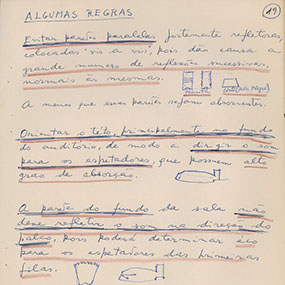 ALGUMAS REGRAS
19
Evitar parêdes paralelas fortemente reflectoras,
colocadas "vis a vis", pois dão causa a
grande numero de reflexões sucessivas,
normais às mesmas.
A menos que essas parêdes sejam absorventes.
Orientar o této, principalmente no fundo
do auditório, de modo a dirigir o som
para os espetadores que possuem alto
grao de absorção.
A parêde do fundo da sala não
deve refletir o som na direção do
palco, pois poderá determinar éco
para os espetadores das primeiras
filas.